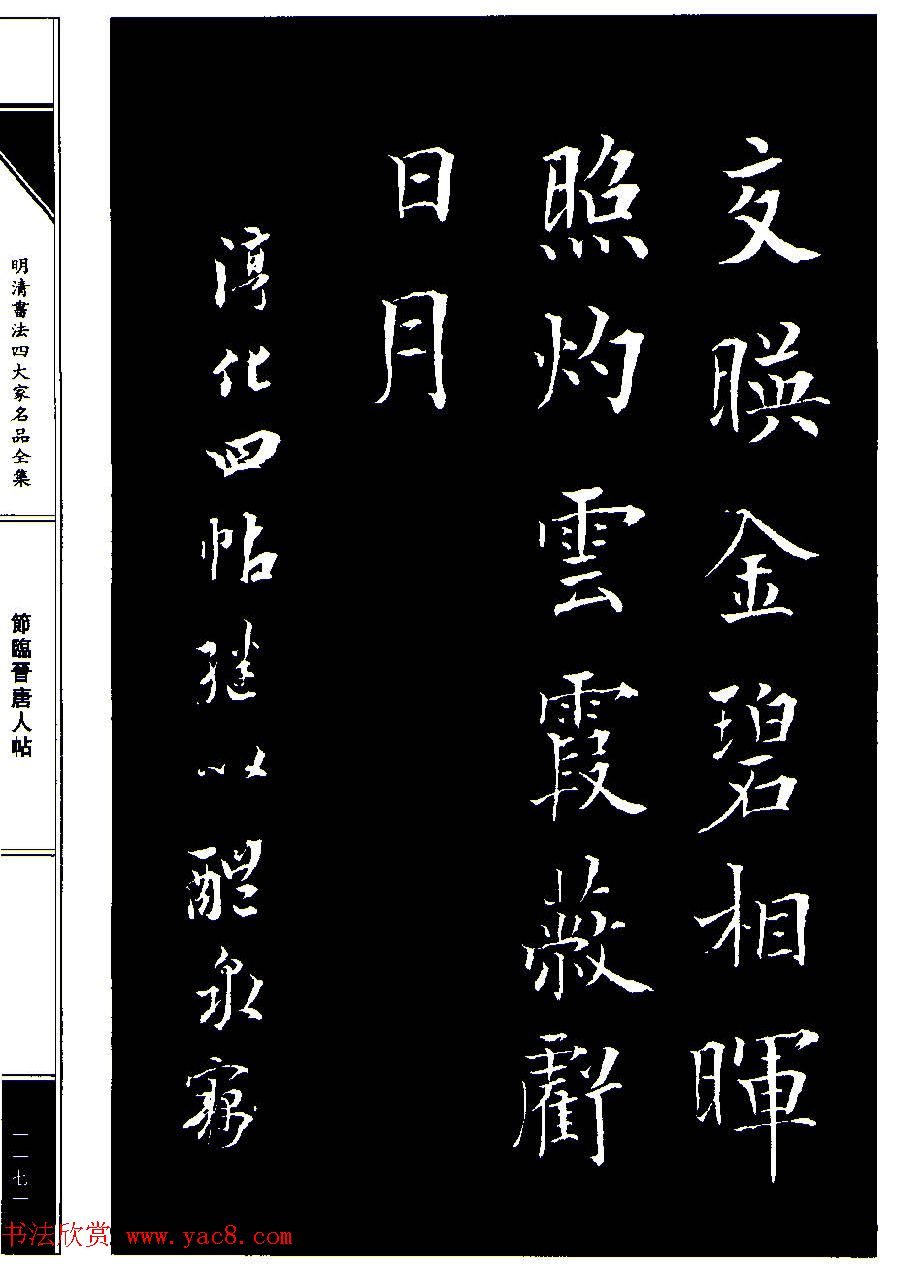 交暎金碧相暉
照灼雲霞蔽虧
日月
淳化四帖继以醴泉
明清書法四大家名品全集
節臨晉唐人帖
一一七
书法欣赏 www.yac8.com